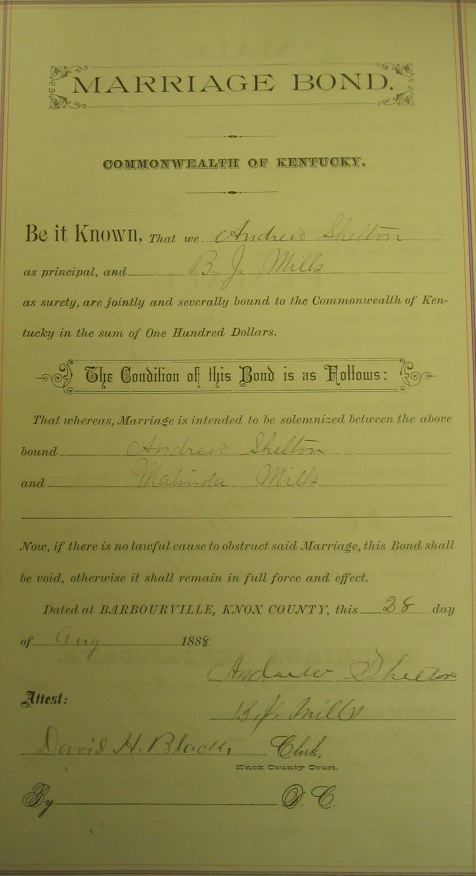 MARRIAGE BOND.
COMMONWEALTH OF KENTUCKY.
Be it Known, That we Andrew Shelton
as principal, and B. J. Mills
as surety, are jointly and severally bound to the Commonwealth of Ken-
tucky in the sum of One Hundred Dollars.
The Condition of this Bond is as Follows:
That whereas, Marriage is intended to be solemnized between the above
bound Andrew Shelton
and Malinda Mills
Now, if there is no lawful cause to obstruct said Marriage, this Bond shall
be void, otherwise it shall remain in full force and effect.
Dated at BARBOURVILLE, KNOX COUNTY, this 28 day
of Aug 1888
Andrew Shelton
Attest:
B. J. Mills
David H. Black, Clerk,
Knox County Court.
By D. C.